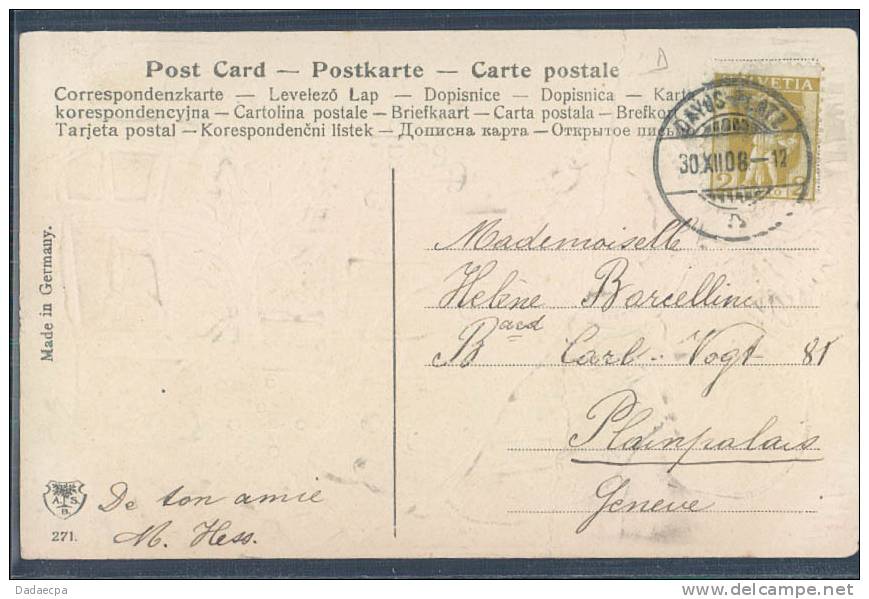 Post Card — Postkarte — Carte postale
Correspondenzkarte — Levelező Lap — Dopisnice — Dopisnica — Karta
korespondencyjna — Cartolina postale — Briefkaart — Carta postala — Brefkort
Tarjeta postal — Korespondenční listek — Дописна карта — Открытое письмо
HELVETIA
DAVOS-PLATZ
30.XII.08-12
2 2
Mademoiselle
Helène Barcelline
Bard Carl-Vogt 81
Plainpalais
Genève
Made in Germany.
A. S.
B.
271.
De ton amie
M. Hess.
Dadaecpa
www.delcampe.net